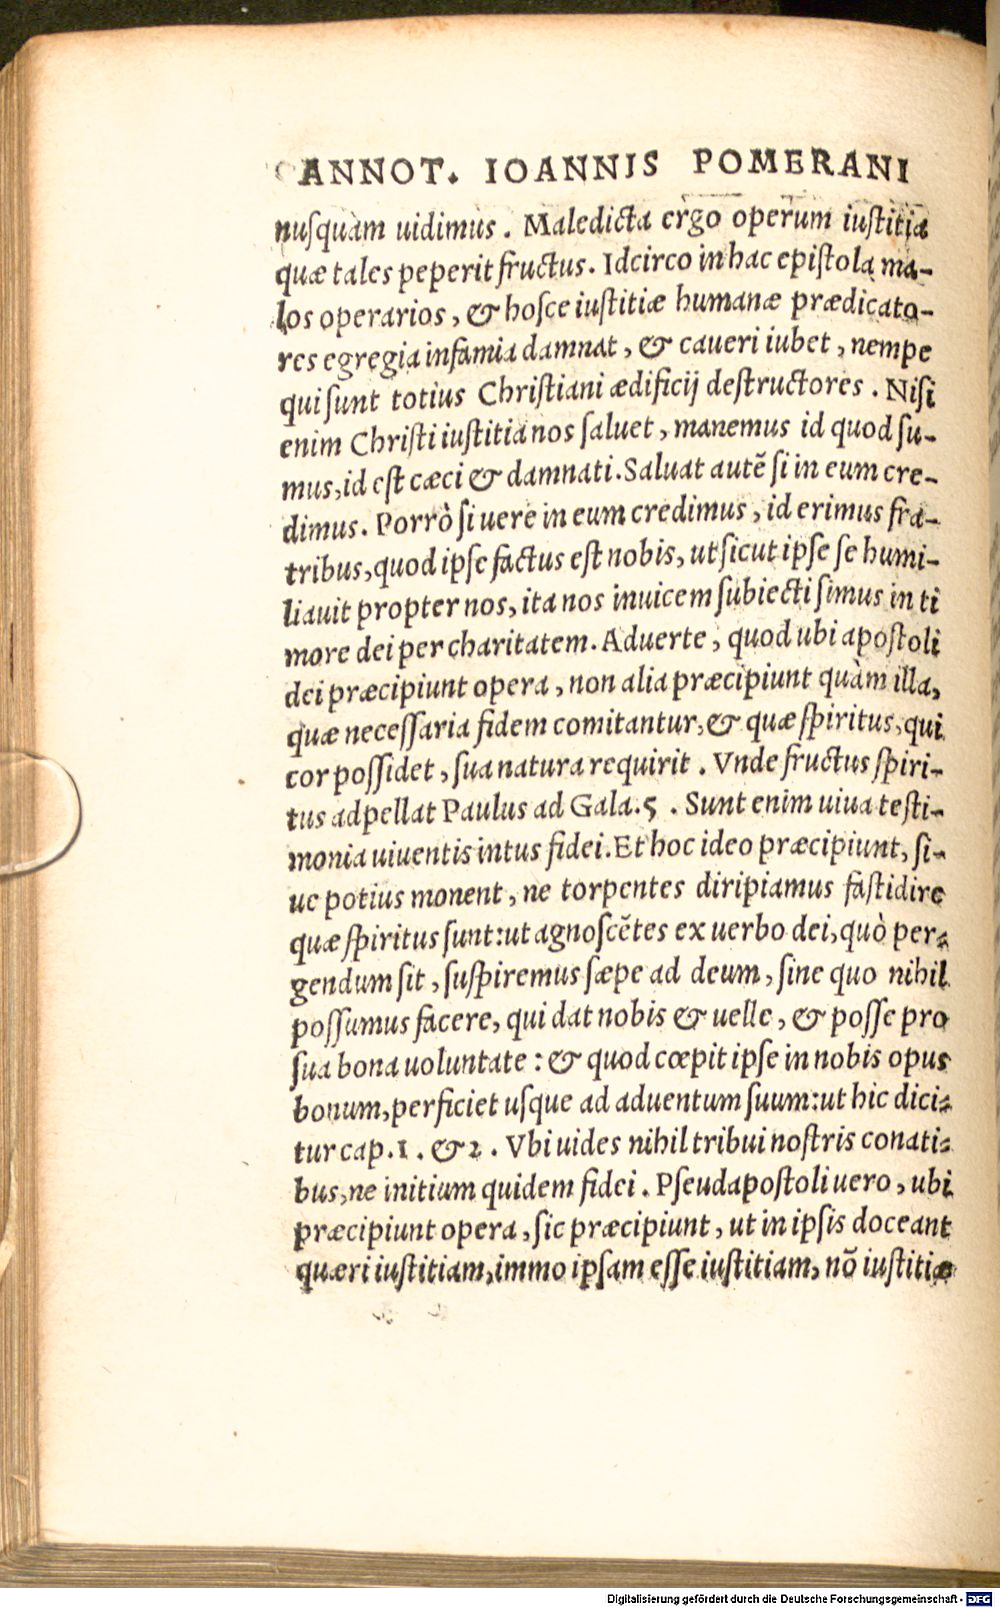 ANNOT. IOANNIS POMERANI
nuſquam uidimus. Maledicta ergo operum iuſtitia
quæ tales peperit fructus. Idcirco in hac epiſtola ma-
los operarios, & hoſce iuſtitiæ humanæ prædicato-
res egregia infamia damnat, & caueri iubet, nempe
qui ſunt totius Chriſtiani ædificij deſtructores. Niſi
enim Chriſti iuſtitia nos ſaluet, manemus id quod ſu-
mus, id eſt cæci & damnati. Saluat autẽ ſi in eum cre-
dimus. Porrò ſi uere in eum credimus, id erimus fra-
tribus, quod ipſe factus eſt nobis, ut ſicut ipſe ſe humi-
liauit propter nos, ita nos inuicem ſubiecti ſimus in ti
more dei per charitatem. Aduerte, quod ubi apoſtoli
dei præcipiunt opera, non alia præcipiunt quàm illa,
quæ neceſſaria fidem comitantur, & quæ ſpiritus, qui
cor poſſidet, ſua natura requirit. Vnde fructus ſpiri-
tus adpellat Paulus ad Gala. 5. Sunt enim uiua teſti-
monia uiuentis intus fidei. Et hoc ideo præcipiunt, ſi-
ue potius monent, ne torpentes diripiamus faſtidire
quæ ſpiritus ſunt: ut agnoſcẽtes ex uerbo dei, quò per-
gendum ſit, ſuſpiremus ſæpe ad deum, ſine quo nihil
poſſumus facere, qui dat nobis & uelle, & poſſe pro
ſua bona uoluntate: & quod cœpit ipſe in nobis opus
bonum, perficiet uſque ad aduentum ſuum: ut hic dici-
tur cap. 1. & 2. Vbi uides nihil tribui noſtris conati-
bus, ne initium quidem fidei. Pſeudapoſtoli uero, ubi
præcipiunt opera, ſic præcipiunt, ut in ipſis doceant
quæri iuſtitiam, immo ipſam eſſe iuſtitiam, nõ iuſtitiæ
Digitalisierung gefördert durch die Deutsche Forschungsgemeinschaft - DFG